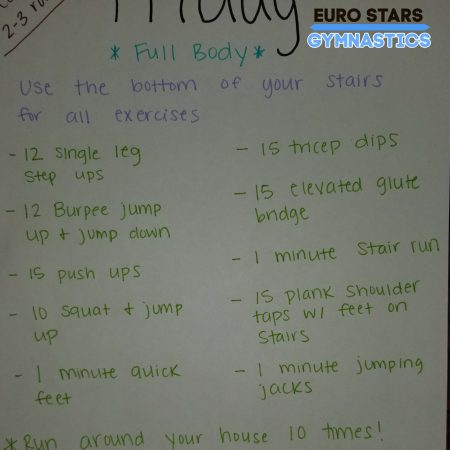 2-3 ro
Friday
EURO STARS
GYMNASTICS
* Full Body *
Use the bottom of your stairs
for all exercises
- 12 single leg
step ups
- 12 Burpee jump
up + jump down
- 15 push ups
- 10 squat + jump
up
- 1 minute quick
feet
- 15 tricep dips
- 15 elevated glute
bridge
- 1 minute stair run
- 15 plank shoulder
taps w/ feet on
stairs
- 1 minute jumping
jacks
* Run around your house 10 times!